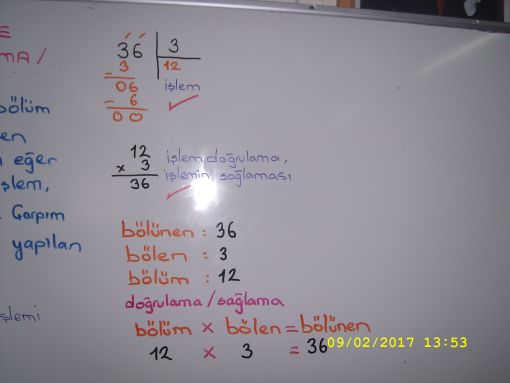 E
MA/
bölüm
en
eğer
şlem,
Çarpım
yapılan
şlemi
36 3
- 3 12
06 işlem
- 6
00
12
x 3
36
işlem doğrulama,
işlemin sağlaması
bölünen : 36
bölen : 3
bölüm : 12
doğrulama/sağlama
bölüm x bölen = bölünen
12 x 3 = 36
09/02/2017 13:53